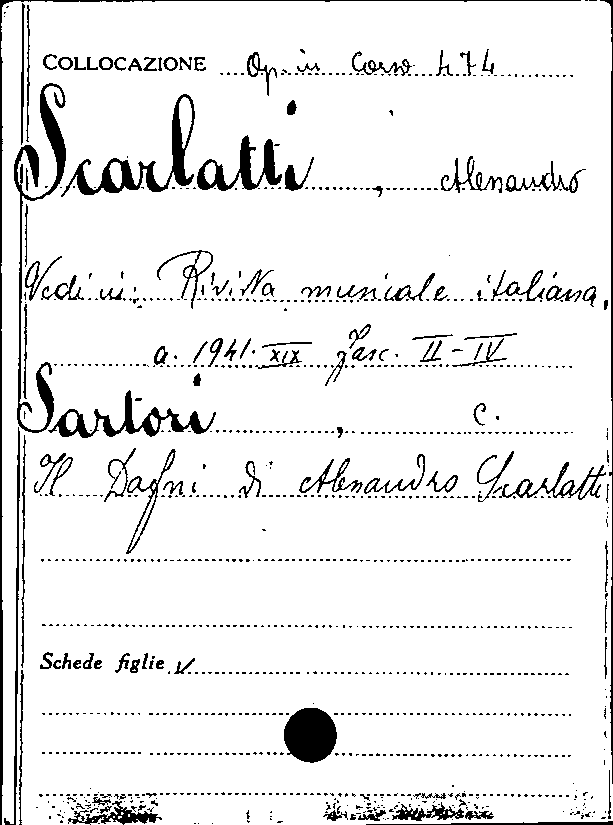 COLLOCAZIONE Op. in Corso 474
Scarlatti, Alessandro
Vedi in: Rivista musicale italiana,
a. 1941. XIX fasc. II-IV
Sartori, C.
Il Dafni di Alessandro Scarlatti
Schede figlie V